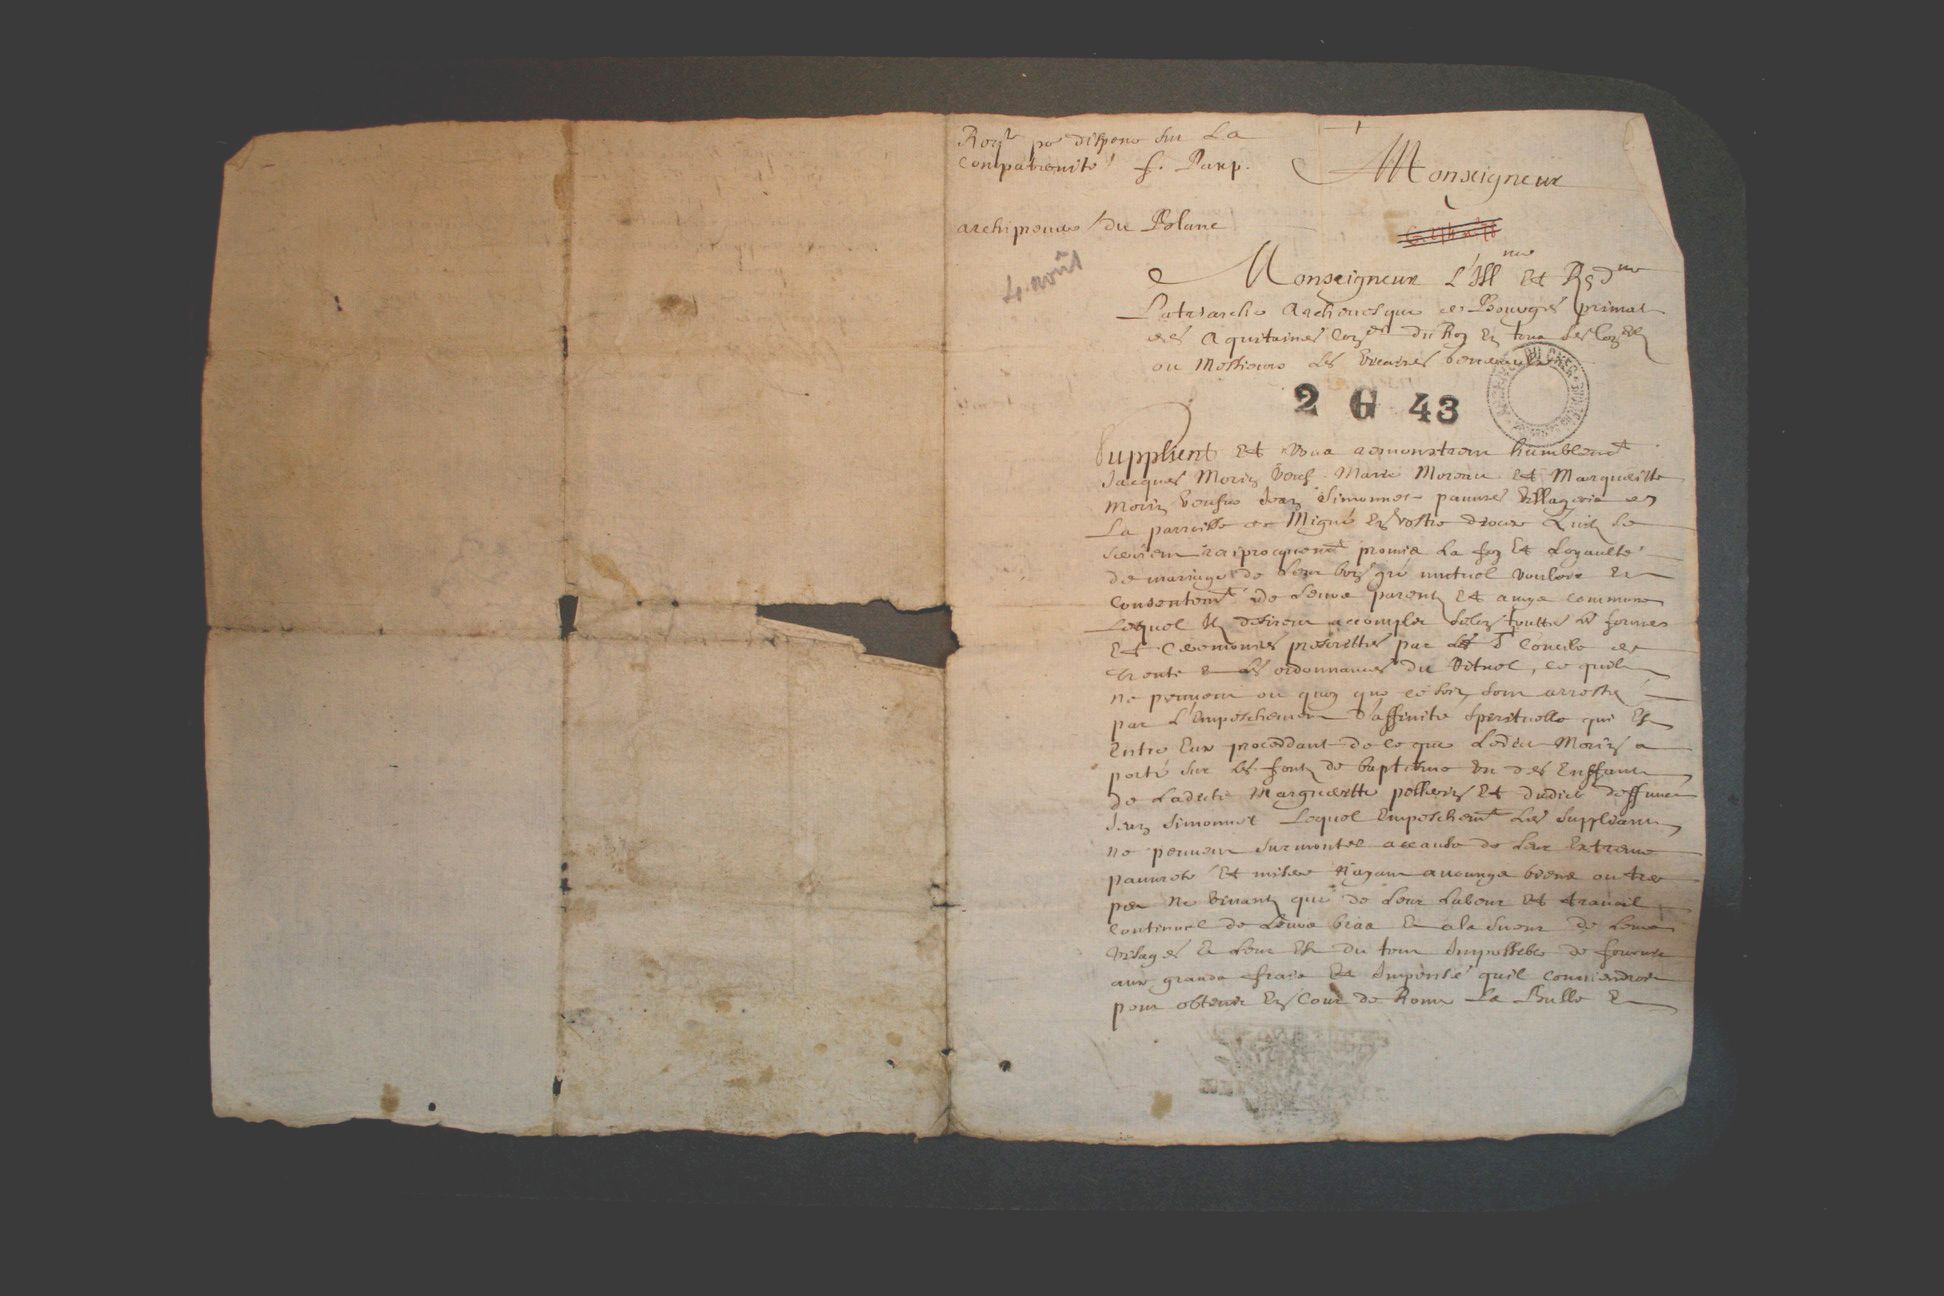 Reqte po dispens sur La
Compaternité f. Paup.
archiprouve du Blanc
4 août
Monseigneur
Monseigneur L'Illme Et Rsdme
Patriarche Archeuesque de Bourges primat
des Aquitaines Coner du Roy En tous ses Conels
ou Messieurs Les Vicaires generaulx
2 G 43
Supplient Et vous remonstrent humblemt
Jacques Morin veuf Marie Moreau Et Margueritte
Morin veufue Jean Simonnet pauures villageois de
La parroisse de Migné En vostre diocese Quils se
seroient reciproquemt promis La foy Et Loyaulté
de mariage de Leur bon gré mutuel vouloir Et
Consentemt de Leurs parents Et amys communs
Lequel Ils desirent accomplir selon touttes Les formes
Et Ceremonies prescrittes par Le St Concile de
Trente Et Les ordonnances du Rituel, ce quils
ne peuuent ou quoy que ce soit sont arresté
par L'Empeschement d'affinité Spirituelle qui Est
Entre Eux proceddant de ce que Ledit Morin a
porté sur Les fonts de baptesme Un des Enffants
de Laditte Margueritte Et dudict deffunct
Jean Simonnet Lequel Empeschemt Les Suppliants
ne peuuent surmonter a cause de Leur Extreme
pauureté Et misere N'ayant aucuns biens
ne Viuants que de Leur Labeur Et trauail
Continuel de Leurs bras Et a la sueur de Leurs
Visages Et Leur Est du tout Impossible de fournir
aux grands frais Et Impense quil Conuiendroit
pour obtenir En Cour de Rome La Bulle Et